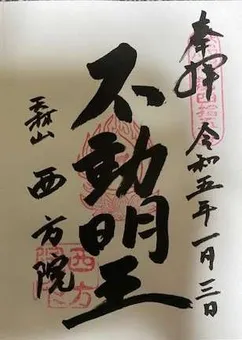 奉拝 令和五年一月三日
不動明王
西方院
西方
院印